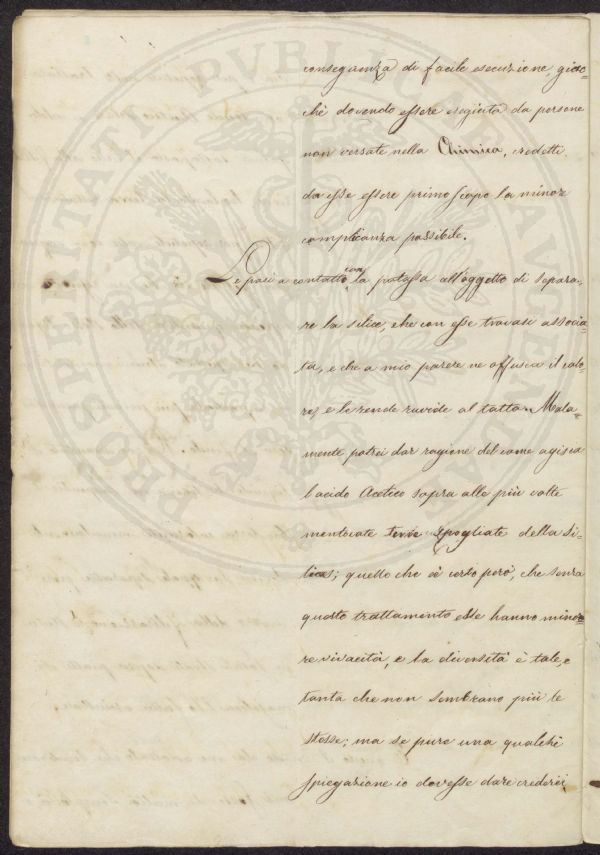 conseguenza di facile esecuzione, giac=
chè dovendo essere eseguita da persone
non versate nella Chimica, credetti
da esse essere primo scopo la minor
complicanza possibile.
Le posi a contatto con la potassa all'oggetto di separa=
re la silice, che con esse trovasi associa=
ta, e che a mio parere ne offusca il colo=
re, e le rende ruvide al tatto. Mala=
mente potrei dar ragione del come agisca
l'acido Acetico sopra alle più volte
mentovate terre spogliate della Si=
lice; quello che è certo però, che senza
questo trattamento esse hanno mino=
re vivacità, e la diversità è tale, e
tanta che non sembrano più le
stesse; ma se pure una qualche
spiegazione io dovesse dare crederei
PROSPERITATI PVBLICAE AVGENDAE